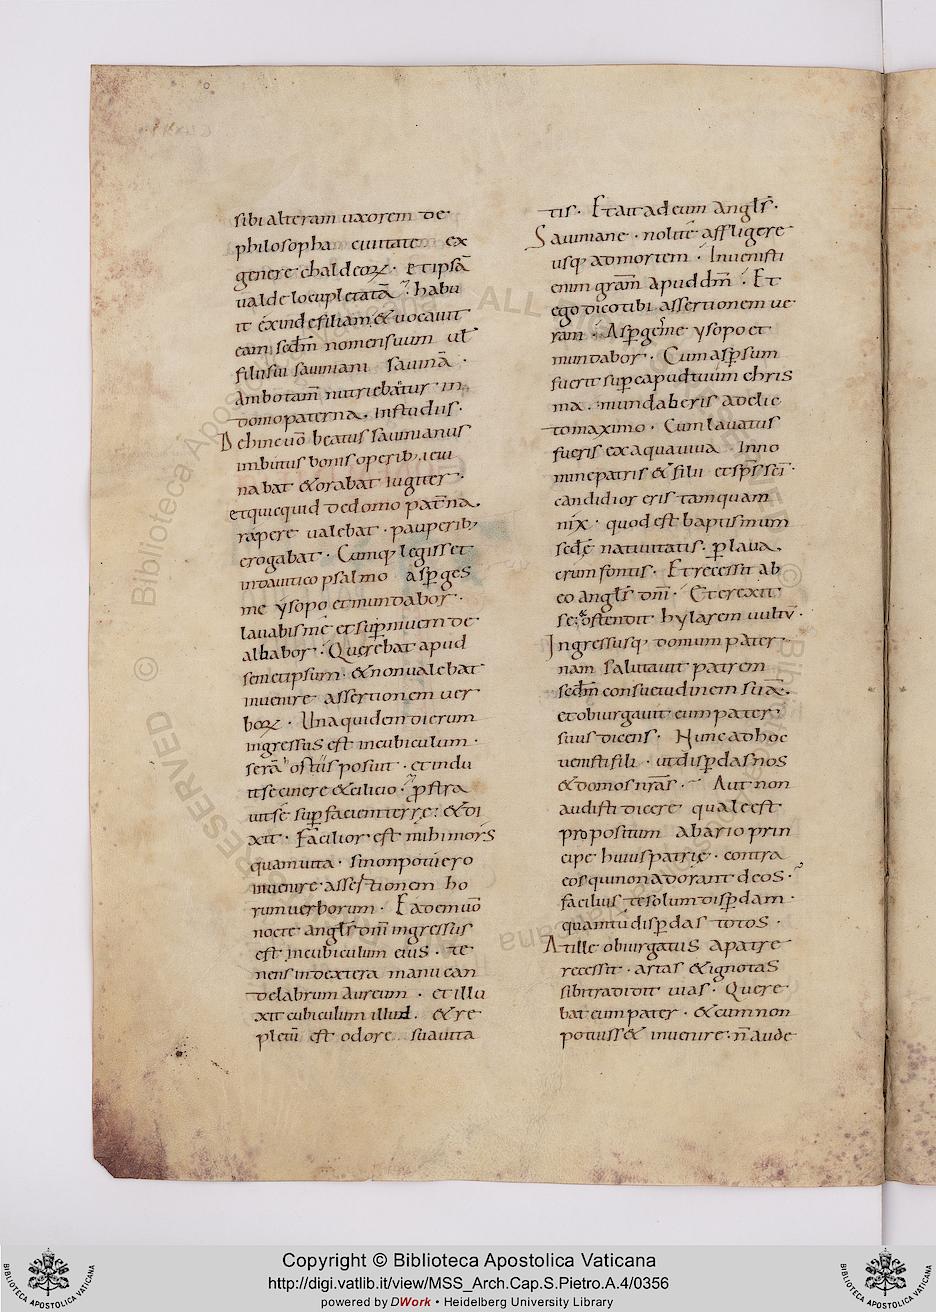 sibi alteram uxorem de
philosopha ciuitate ex
genere chaldeoꝝ · et ipsā
ualde locupletatā · habu
it exinde filiam, & uocauit
eam, secdm̄ nomen suum uł
filii sui sauiniani sauinā ·
ambo tam̄ nutriebātur in
domo paterna, in studiis ·
Dehinc uō beatus sauinianus
imbutus bonis operib; ieiu
nabat & orabat iugiter ·
et quicquid de domo pat̄na,
rapere ualebat · pauperib;
erogabat · Cumq; legisset
in dauitico psalmo asp̱ges
me ysopo et mundabor ·
lauabis me et sup̱ niuem de
albabor · Querebat apud
semetipsum · & non ualebat
inuenire assertionem uer
boꝝ · Una quidem dierum
ingressus est in cubiculum ·
serā ostiis posuit · et indu
it se cinere & cilicio · p̱stra
uit se sup̱ faciem terrę · & di
xit · Facilior est mihi mors
quam uita · si non potuero
inuenire assertionem ho
rum uerborum · Eadem uō
nocte angłs dn̄i ingressus
est in cubiculum eius · te
nens in dextera manu can
delabrum aureum · et illu
xit cubiculum illud · & re
pletū est odore suauita
tis · Et ait ad eum angłs ·
Sauiniane · nolite affligere
usq; ad mortem · Inuenisti
enim gram̄ apud dm̄ · Et
ego dico tibi assertionem ue
ram · Asp̱ges me ysopo et
mundabor · Cum asp̱sum
fuerit sup̱ caput tuum chris
ma · mundaberis a delic
to maximo · Cum lauatus
fueris ex aqua uiua · In no
mine patris & filii et sp̄s sc̄i ·
candidior eris tamquam
nix · quod est baptismum
secdę natiuitatis · p̱ laua
crum fontis · Et recessit ab
eo angłs dn̄i · Et erexit
se · & ostendit hylarem uultū ·
Ingressusq; domum pater
nam salutauit patrem
secdm̄ consuetudinem suā ·
et obiurgauit eum pater
suus dicens · Nunc ad hoc
uenisti fili · ut disp̱das nos
& domos nr̄as · Aut non
audisti dicere quale est
propositum ab ario prin
cipe huius patrię · contra
eos qui non adorant deos ·
facilius te solum disp̱dam ·
quam tū disp̱das totos ·
At ille obiurgatus a patre
recessit · artas & ignotas
sibi tradidit uias · Quere
bat eum pater · & cum non
potuiss& inuenire · n̄ aude
Copyright © Biblioteca Apostolica Vaticana
http://digi.vatlib.it/view/MSS_Arch.Cap.S.Pietro.A.4/0356
powered by DWork • Heidelberg University Library